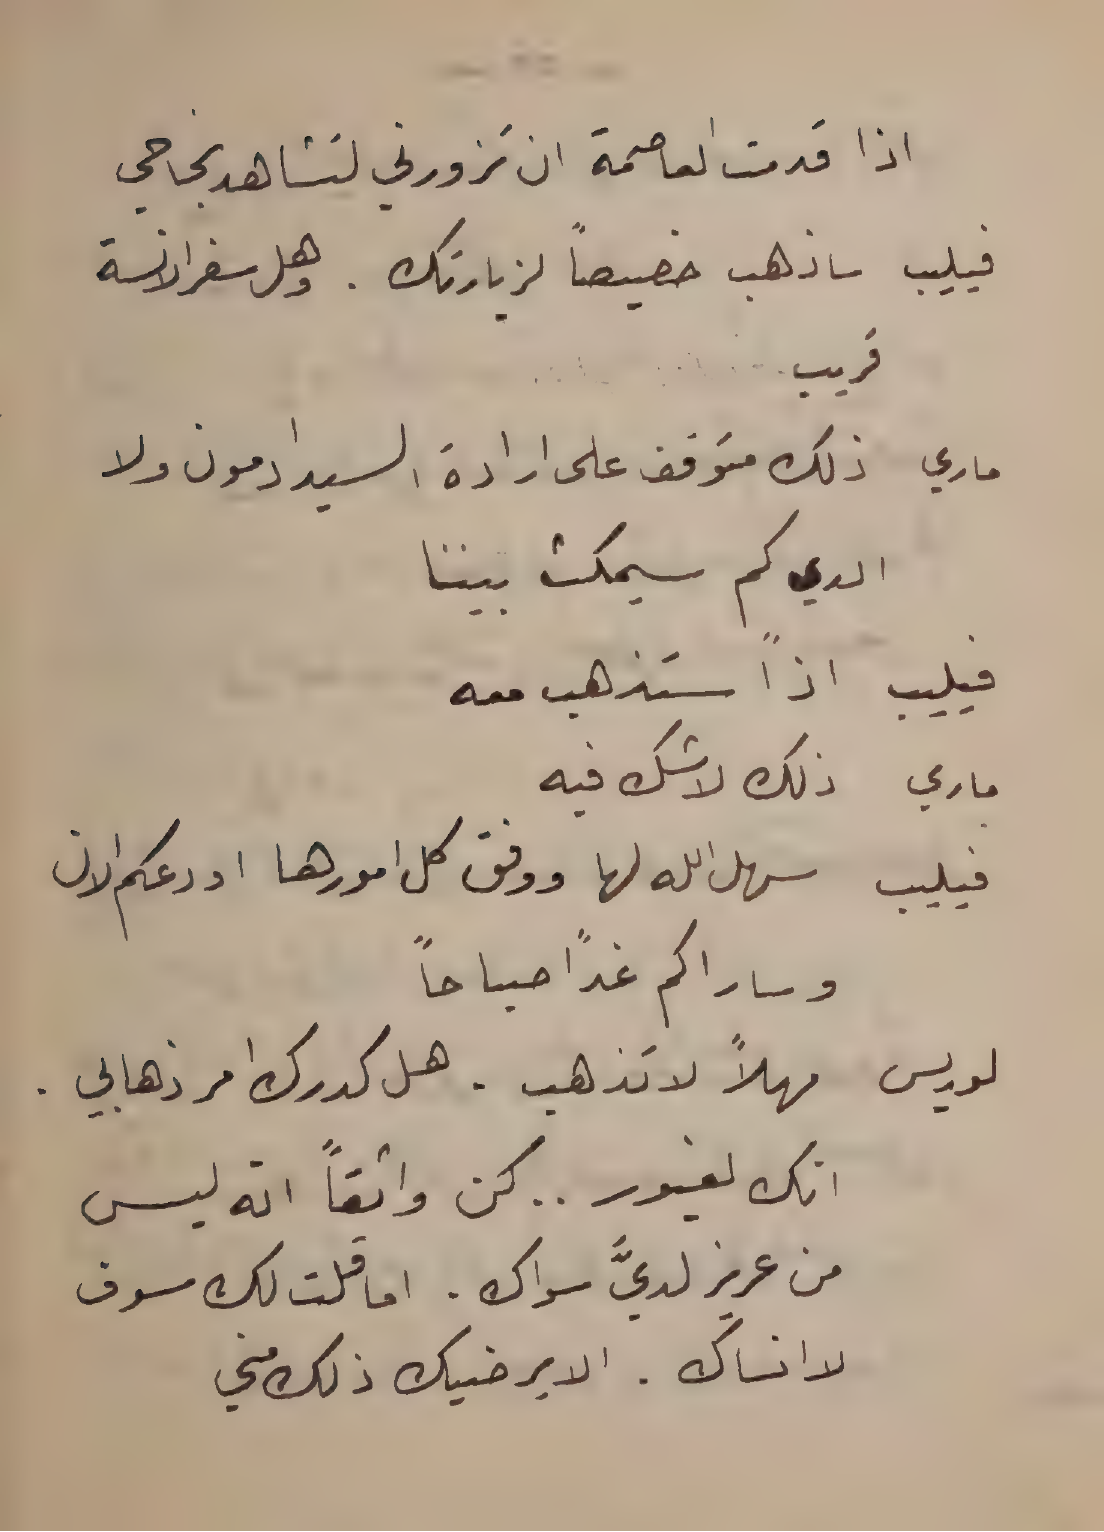 اذا قدمت العاصمة ان تزورني لتشاهد نجاحي
فيليب ساذهب خصيصاً لزيارتك . وهل سفر الانسة
قريب
ماري ذلك متوقف على ارادة السيد ادمون ولا
ادري كم سيمكث بيننا
فيليب اذاً ستذهب معه
ماري ذلك لاشك فيه
فيليب سهل الله لها ووفق كل امورها اودعكم الان
وساراكم غداً صباحاً
لويس مهلاً لا تذهب . هل كدرك امر ذهابي .
انك لغيور .. كن واثقاً انه ليس
من عزيز لديَّ سواك . اما قلت لك سوف
لا انساك . الا يرضيك ذلك مني